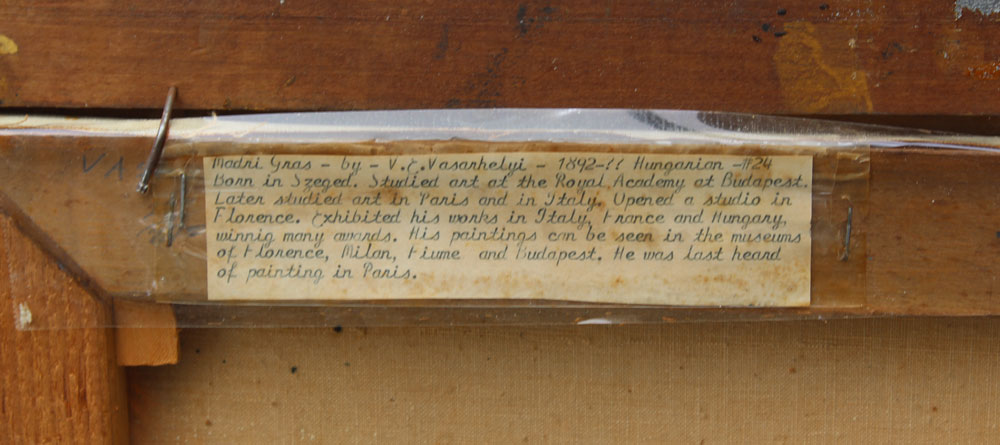 VA
Madri Gras - by - V.E.Vasarhelyi - 1892-?? Hungarian -#24
Born in Szeged. Studied art at the Royal Academy at Budapest.
Later studied art in Paris and in Italy. Opened a studio in
Florence. Exhibited his works in Italy, France and Hungary,
winnig many awards. His paintings can be seen in the museums
of Florence, Milan, Fiume and Budapest. He was last heard
of painting in Paris.